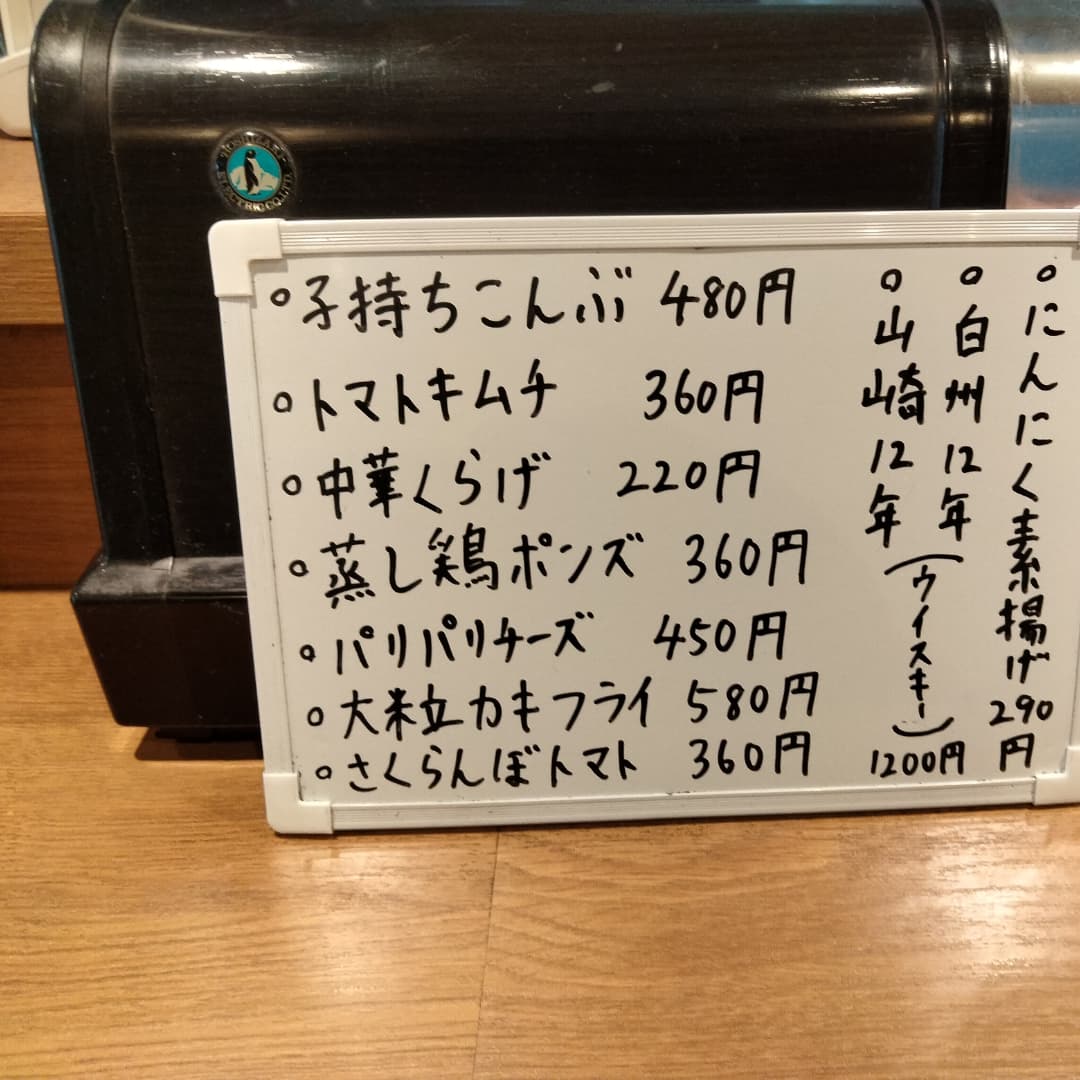 HOSHIZAKI
ELECTRIC CO.,LTD.
○子持ちこんぶ 480円
○トマトキムチ 360円
○中華くらげ 220円
○蒸し鶏ポンズ 360円
○パリパリチーズ 450円
○大粒カキフライ 580円
○さくらんぼトマト 360円
○にんにく素揚げ290円
○白州12年
○山崎12年
(ウイスキー)
1200円